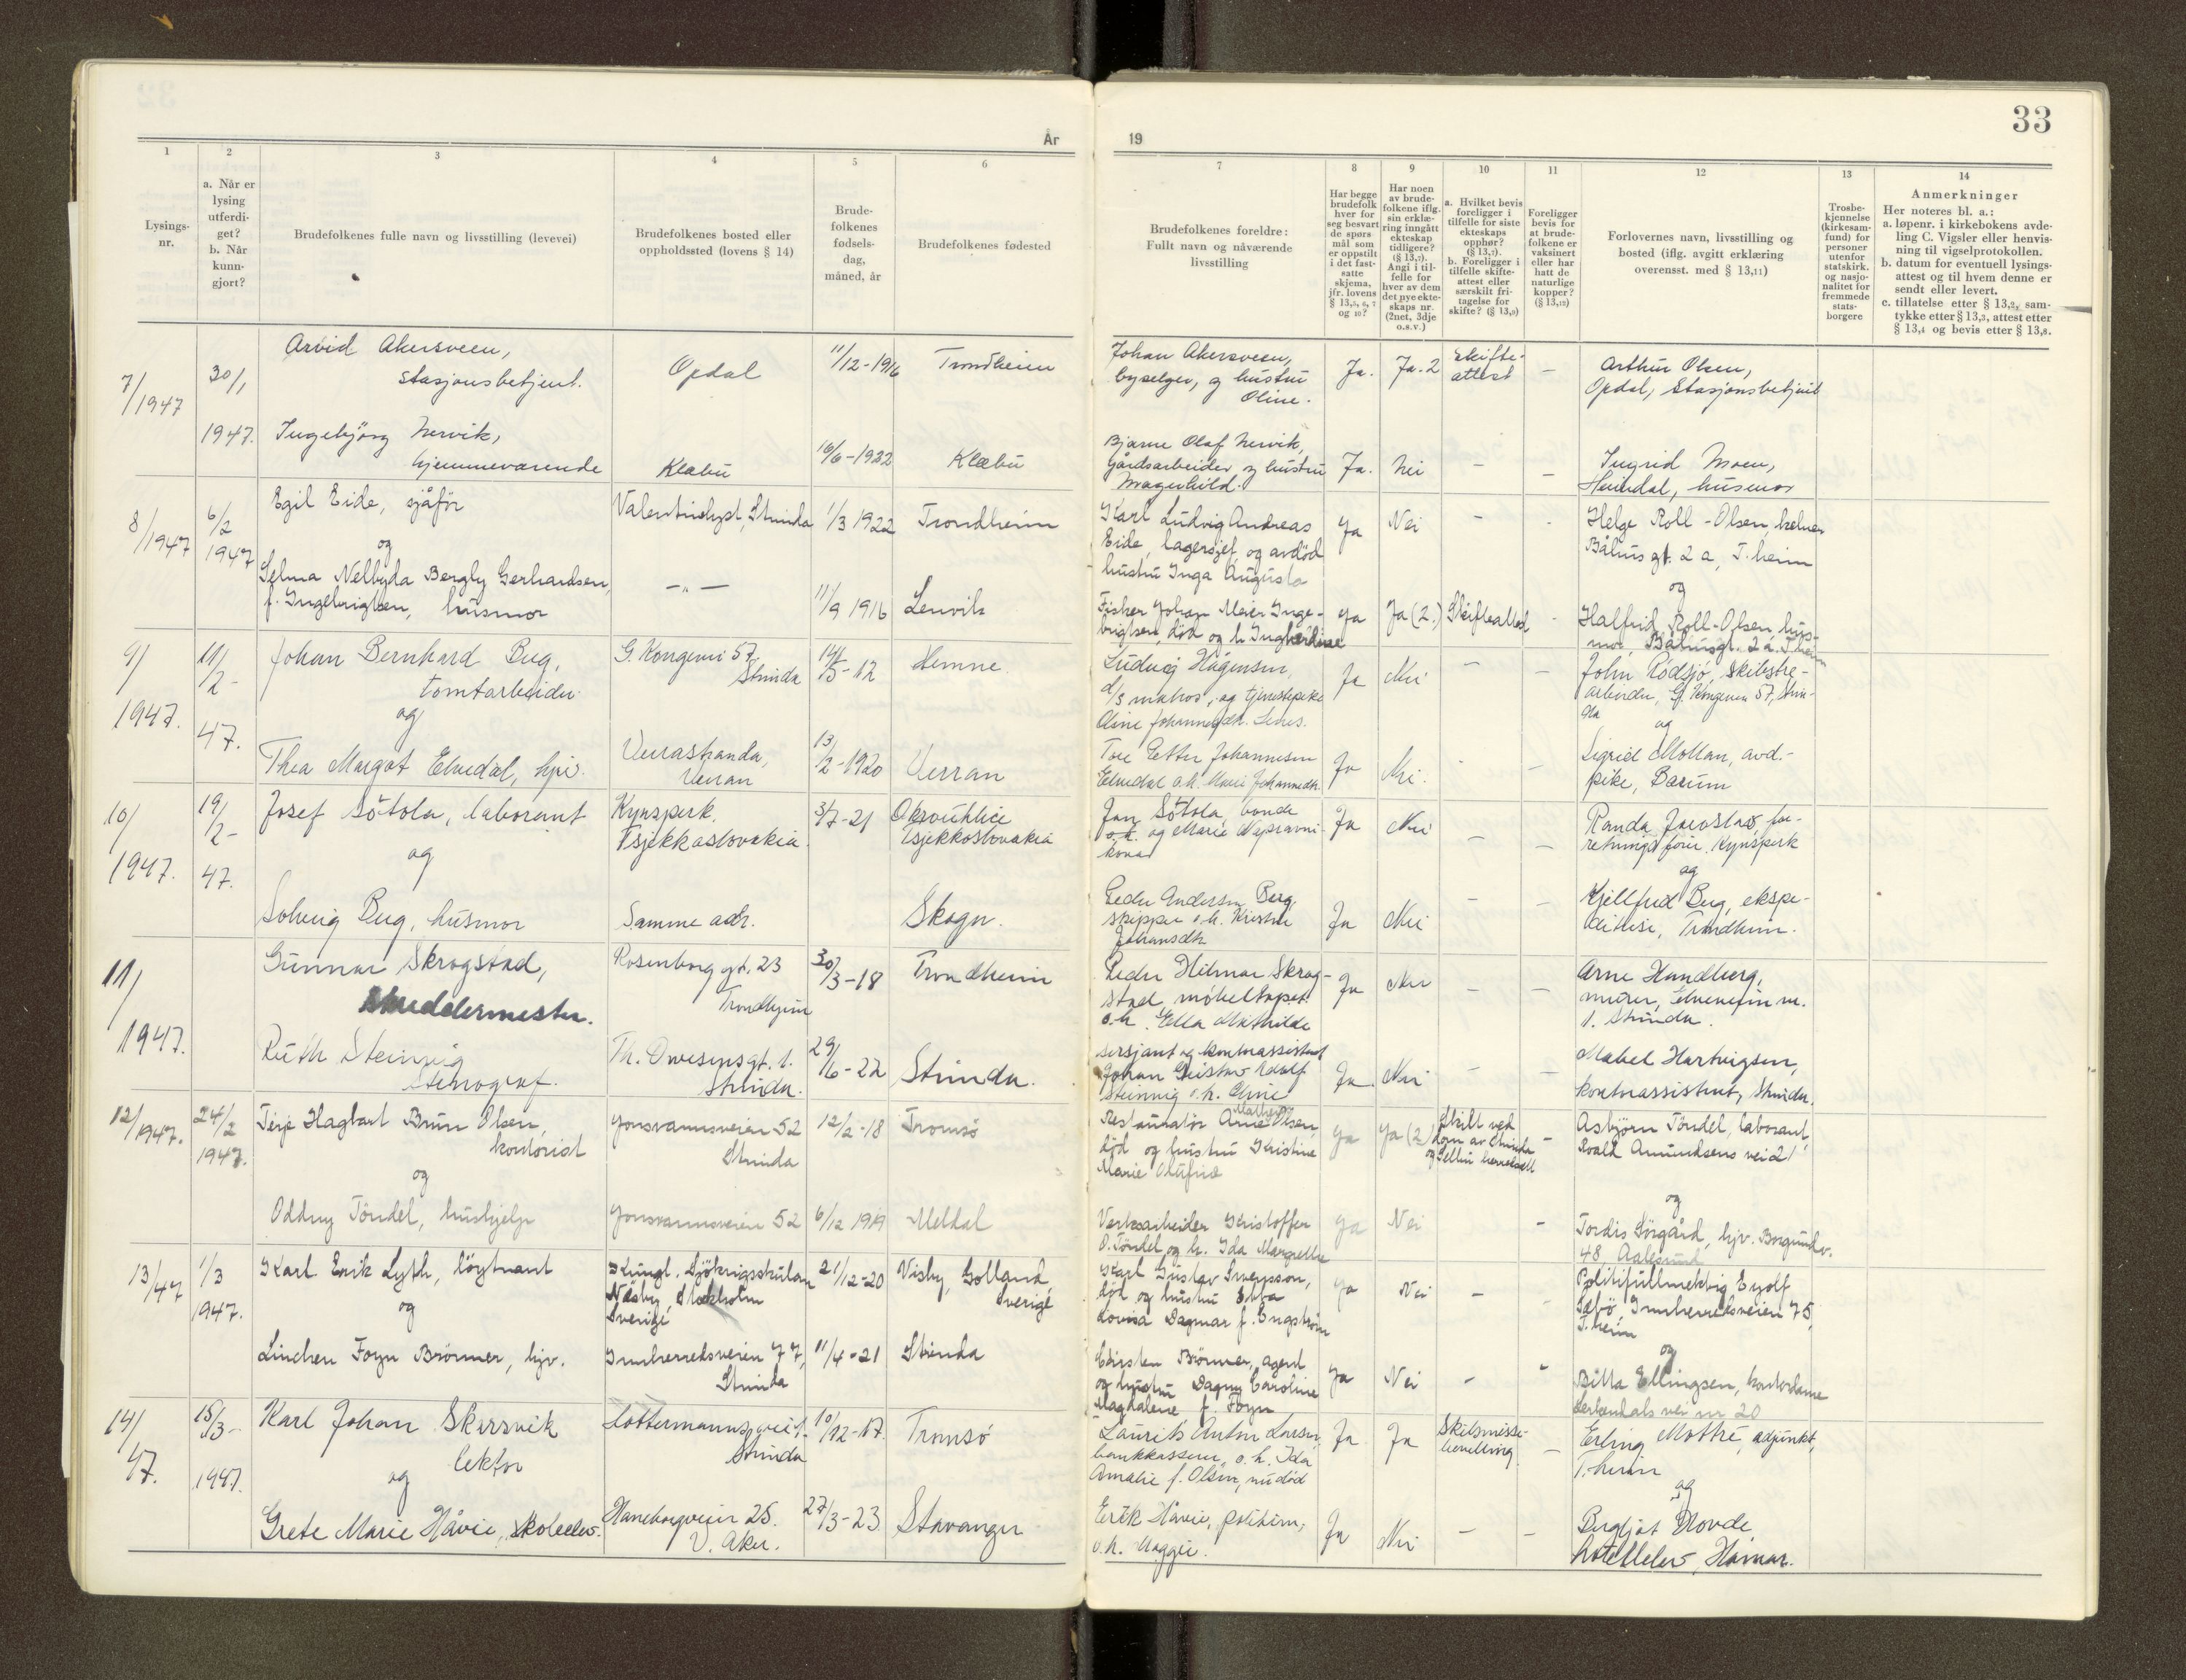 33
År
19
1
2
3
4
5
6
7
8
9
10
11
12
13
14
Lysings-
nr.
a. Når er
lysing
utferdi-
get?
b. Når
kunn-
gjort?
Brudefolkenes fulle navn og livsstilling (levevei)
Brudefolkenes bosted eller
oppholdssted (lovens § 14)
Brude-
folkenes
fødsels-
dag,
måned, år
Brudefolkenes fødested
Brudefolkenes foreldre:
Fullt navn og nåværende
livsstilling
Har begge
brudefolk
hver for
seg besvart
de spørs
mål som
er oppstilt
i det fast-
satte
skjema,
jfr. lovens
§ 13,5, 6, 7
og 10?
Har noen
av brude-
folkene iflg.
sin erklæ-
ring inngått
ekteskap
tidligere?
(§ 13,7).
Angi i til-
felle for
hver av dem
det nye ekte-
skaps nr.
(2net, 3dje
o.s.v.)
a. Hvilket bevis
foreligger i
tilfelle for siste
ekteskaps
opphør?
(§ 13,7).
b. Foreligger i
tilfelle skifte-
attest eller
særskilt fri-
tagelse for
skifte? (§ 13,9)
Foreligger
bevis for
at brude-
folkene er
vaksinert
eller har
hatt de
naturlige
kopper?
(§ 13,12)
Forlovernes navn, livsstilling og
bosted (iflg. avgitt erklæring
overensst. med § 13,11)
Trosbe-
kjennelse
(kirkesam-
fund) for
personer
utenfor
statskirk.
og nasjo-
nalitet for
fremmede
stats-
borgere
Anmerkninger
Her noteres bl. a.:
a. løpenr. i kirkebokens avde-
ling C. Vigsler eller henvis-
ning til vigselprotokollen.
b. datum for eventuell lysings-
attest og til hvem denne er
sendt eller levert.
c. tillatelse etter § 13,2, sam-
tykke etter § 13,3, attest etter
§ 13,4 og bevis etter § 13,8.
7/1947
30/1
1947.
Arvid Akersveen,
stasjonsbetjent.
Opdal
11/12-1916
Trondheim
Johan Akersveen,
byselger, og hustru
Oline.
Ja.
Ja. 2
Skifte-
attest
–
Arthur Olsen,
Opdal, Stasjonsbetjent
Ingebjörg Nervik,
hjemmeværende
Klæbu
16/6-1922
Klæbu
Bjarne Olaf Nervik,
gårdsarbeider, og hustru
Magnhild.
Ja.
Nei
–
–
Ingrid Moen,
Heimdal, husmor
8/1947
6/2
1947
Egil Eide, sjåför
og
Valentinlyst, Strinda
1/3 1922
Trondheim
Karl Ludvig Andreas
Eide, lagersjef, og avdöd
hustru Inga Augusta
Ja
Nei
-
-
Helge Roll-Olsen, kelner
Båhus gt. 2 a, T.heim
og
Selma Nelbyda Bergly Gerhardsen,
f. Ingebrigtsen, husmor
–"–
11/9 1916
Lenvik
Fisker Johan Meier Inge-
brigtsen, död og h. Ingherdine
Ja
Ja (2.)
Skifteattest
-
Halfrid Roll-Olsen, hus-
mor, Båhusgt. 2 a. T.heim
9/
1947.
11/2-
47.
Johan Bernhard Berg,
tomtarbeider
og
G. Kongevei 57.
Strinda
14/5-12
Hemne
Ludvig Hågensen,
d/s matros, og tjenestepike
Oline Johannesdt.
Ja
Nei
–
–
John Rödsjö, skibstre-
arbeider, G. Kongevei 57, Strin-
da
og
Thea Margot Elvedal, hjv.
Verrastranda,
Verran
13/2-1920
Verran
Tore Petter Johannesen
Elvedal o.h. Marie Johannesdt.
Ja
Nei.
-
–
Sigrid Moltan, avd.-
pike, Bærum
10/
1947.
19/2-
47.
Josef Sötola, laborant
og
Kynsperk.
Tsjekkoslovakia.
3/7-21
Okrouhlice
Tsjekkoslovakia
Jan Sötola, bonde
o.h. og Marie Napravni-
kova
Ja
Nei
–
–
Randa Jaroslav for-
retningsförer. Kynsperk
og
Solveig Berg, husmor
Samme adr.
Skogn.
Peder Andersen Berg,
skipper o.h. Kirstine
Johansdt.
Ja
Nei
–
–
Kjellfred Berg, ekspe-
ditrise, Trondheim.
11/
1947.
Gunnar Skrogstad,
skreddermester.
Rosenborg gt. 23
Trondheim
30/3-18
Trondheim
Peder Hilmar Skrog-
stad, möbeltapet.
o.h. Ella Mathilde
Ja
Nei
–
–
Arne Handberg,
murer,
1. Strinda.
Ruth Steinvig
Stenograf.
Th. Owesensgt. 1.
Strinda.
29/6-22
Strinda.
Sersjant og kontorassistent
Johan Gustav Adolf
Steinvig o.h. Eline
Ja.
Nei
–
–
Mabel Hartvigsen,
kontorassistent, Strinda.
12/1947.
24/2
1947.
Terje Hagbart Brun Olsen,
kontorist
og
Jonsvannsveien 52
Strinda
12/2-18
Tromsö
Restauratör Arne Olsen,
död og hustru Kristine
Marie Olufine
Ja
Ja (2)
Skilt ved
dom av Strinda
og Selbu herredsrett
–
Asbjörn Töndel, laborant,
Roald Amundsens vei 21
og
Oddny Töndel, hushjelp
Jonsvannsveien 52
6/12 1919
Meldal
Verksarbeider Kristoffer
O. Töndel og h. Ida Margrethe
Ja
Nei
-
Tordis Sörgård, hjv. Borgundv.
48 Aalesund
13/47
1/3
1947.
Karl Erik Lyth, löytnant
og
Kungl. Sjökrigsskulan
Näsby, Stockholm
Sverige
21/2-20
Visby, Gotland,
Sverige
Karl Gustav Svensson,
död og hustru Ebba
Lovisa Dagmar f. Engström
Ja
Nei
–
-
Politifullmektig Eyolf
Sæbö, Innherredsveien 75,
T.heim
og
Linchen Foyn Brönner, hjv.
Innherredsveien 77,
Strinda
11/4-21
Strinda
Carsten Brönner, agent
og hustru Dagny Caroline
Magdalene f. Foyn
Ja
Nei
–
-
Bitta Ellingsen, kontordame
Lerkendals vei nr 20
14/
47.
15/3-
1947.
Karl Johan Skarsvik
lektor
og
Lottermannsvei 1.
Strinda
10/12-17.
Tromsö
Laurits Anton Larsen,
bankkasserer, o.h. Ida
Amalie f. Olsen, nu död
Ja
Ja
Skilsmisse-
bevilling
–
Erling Mothé, adjunkt,
T.heim
og
Grete Marie Håvie, skoleelev.
Haneborgveien 25.
V. Aker.
27/3-23
Stavanger
Erik Håvie, politim.,
o.h. Maggie.
Ja
Nei
–
–
Bergljot Hovde,
hotellelev, Hamar.